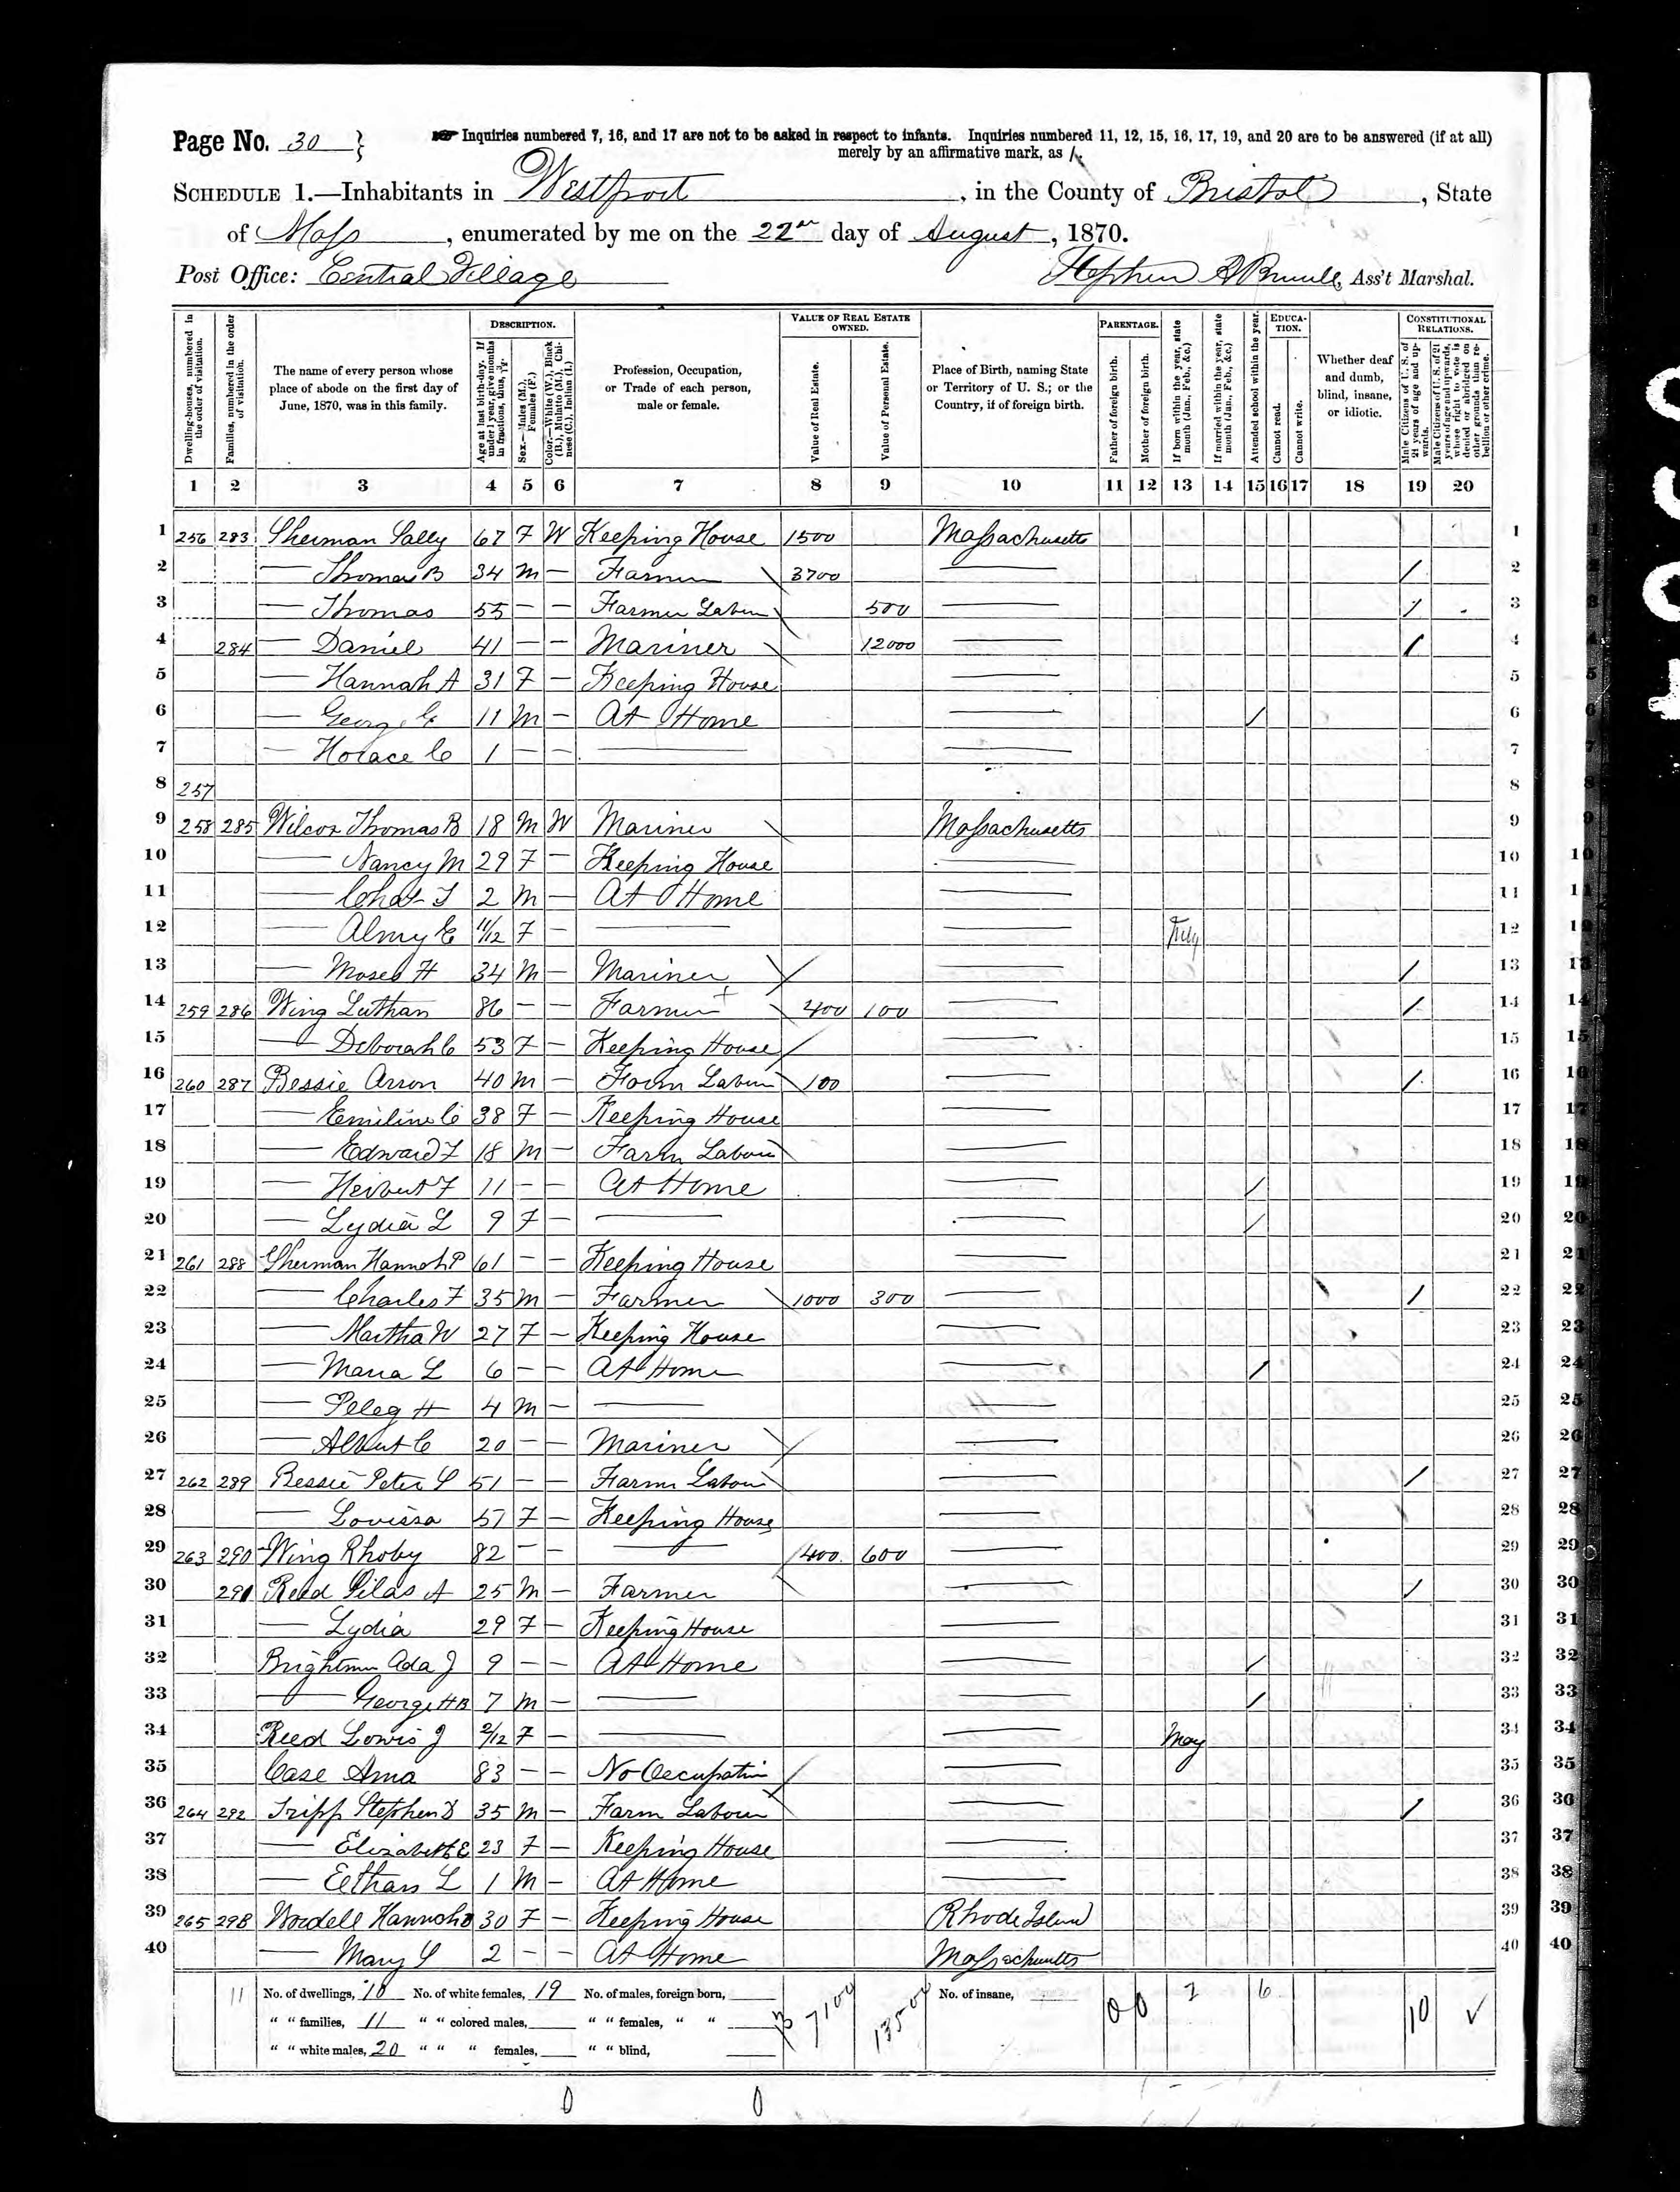 Page No. 30 }
Inquiries numbered 7, 16, and 17 are not to be asked in respect to infants. Inquiries numbered 11, 12, 15, 16, 17, 19, and 20 are to be answered (if at all)
merely by an affirmative mark, as /.
SCHEDULE 1.—Inhabitants in Westport, in the County of Bristol, State
of Mass, enumerated by me on the 22 day of August, 1870.
Post Office: Central Village
Stephen A, Ass't Marshal.
Dwelling-houses, numbered in the order of visitation.
Families, numbered in the order of visitation.
The name of every person whose place of abode on the first day of June, 1870, was in this family.
DESCRIPTION.
Age at last birth-day. If under 1 year, give months in fractions, thus, 3/12.
Sex.—Males (M.), Females (F.)
Color.—White (W.), Black (B.), Mulatto (M.), Chinese (C.), Indian (I.)
Profession, Occupation, or Trade of each person, male or female.
VALUE OF REAL ESTATE OWNED.
Value of Real Estate.
Value of Personal Estate.
Place of Birth, naming State or Territory of U. S.; or the Country, if of foreign birth.
PARENTAGE.
Father of foreign birth.
Mother of foreign birth.
If born within the year, state month (Jan., Feb., &c.)
If married within the year, state month (Jan., Feb., &c.)
Attended school within the year.
EDUCATION.
Cannot read.
Cannot write.
Whether deaf and dumb, blind, insane, or idiotic.
CONSTITUTIONAL RELATIONS.
Male Citizens of U. S. of 21 years of age and upwards.
Male Citizens of U. S. of 21 years of age and upwards, whose right to vote is denied or abridged on other grounds than rebellion or other crime.
1 2 3 4 5 6 7 8 9 10 11 12 13 14 15 16 17 18 19 20
1 256 283 Sherman Sally 67 F W Keeping House 1500 Massachusetts 1
2 — Thomas B 34 M — Farmer 3700 — / 2
3 — Thomas 55 — — Farmer Labour 500 — / 3
4 284 — Daniel 41 — — Mariner 12000 — / 4
5 — Hannah A 31 F — Keeping House — 5
6 — George C 11 M — At Home — / 6
7 — Horace C 1 — — — — 7
8 257 8
9 258 285 Wilcox Thomas B 18 M W Mariner Massachusetts 9
10 — Nancy M 29 F — Keeping House — 10
11 — Chas 2 M — At Home — 11
12 — Almy E 11/12 F — — — July 12
13 — Moses H 34 M — Mariner — / 13
14 259 286 Wing Luthan 86 — — Farmer 400 100 — / 14
15 — Deborah C 53 F — Keeping House — 15
16 260 287 Bessie Arson 40 M — Farm Labour 100 — / 16
17 — Emiline C 38 F — Keeping House — 17
18 — Edward F 18 M — Farm Labour — 18
19 — Herbert F 11 — — At Home — / 19
20 — Lydia L 9 F — — — / 20
21 261 288 Sherman Hannah P 61 — — Keeping House — 21
22 — Charles F 35 M — Farmer 1000 300 — / 22
23 — Martha W 27 F — Keeping House — 23
24 — Maria L 6 — — At Home — / 24
25 — Peleg H 4 M — — — 25
26 — Albert C 20 — — Mariner — 26
27 262 289 Bessie Peter S 51 — — Farm Labour — / 27
28 — Lovissa 57 F — Keeping House — 28
29 263 290 Wing Rhoby 82 — — — 400 600 — 29
30 291 Reed Silas A 25 M — Farmer — / 30
31 — Lydia 29 F — Keeping House — 31
32 Brightman Ada J 9 — — At Home — / 32
33 — George H B 7 M — — — / 33
34 Reed Lowis J 2/12 F — — — May 34
35 Case Ama 83 — — No Occupation — 35
36 264 292 Tripp Stephen D 35 M — Farm Labour — / 36
37 — Elizabeth E 23 F — Keeping House — 37
38 — Eethan L 1 M — At Home — 38
39 265 293 Wordell Hannah 30 F — Keeping House Rhode Island 39
40 — Mary S 2 — — At Home Massachusetts 40
11 No. of dwellings, 10 No. of white females, 19 No. of males, foreign born, 7100 13500 No. of insane, 0 0 2 6 10 ✓
" " families, 11 " " colored males, " " females, " "
" " white males, 20 " " " females, " " blind,
0 0